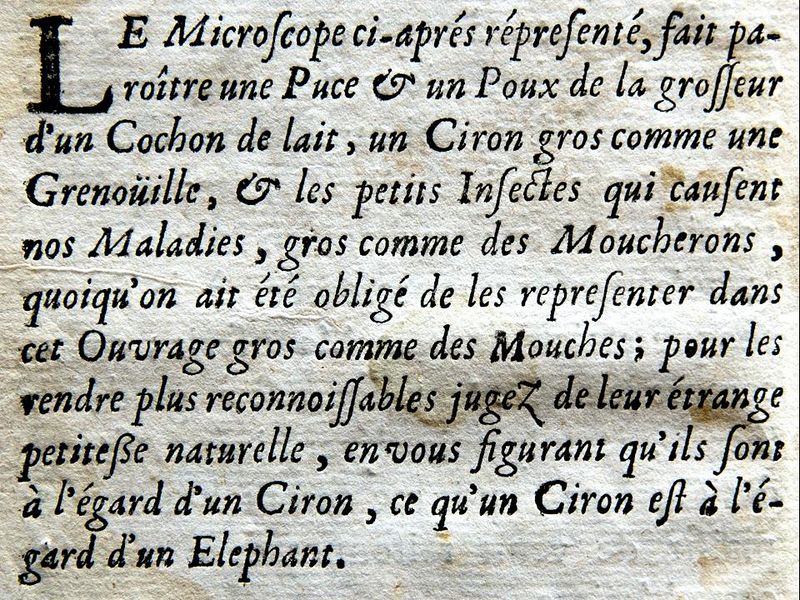 LE Microſcope ci-aprés répreſenté, fait pa-
roître une Puce & un Poux de la groſſeur
d'un Cochon de lait, un Ciron gros comme une
Grenoüille, & les petits Inſectes qui cauſent
nos Maladies, gros comme des Moucherons,
quoiqu'on ait été obligé de les repreſenter dans
cet Ouvrage gros comme des Mouches; pour les
rendre plus reconnoiſſables jugez de leur étrange
petiteße naturelle, en vous figurant qu'ils ſont
à l'égard d'un Ciron, ce qu'un Ciron eſt à l'é-
gard d'un Elephant.